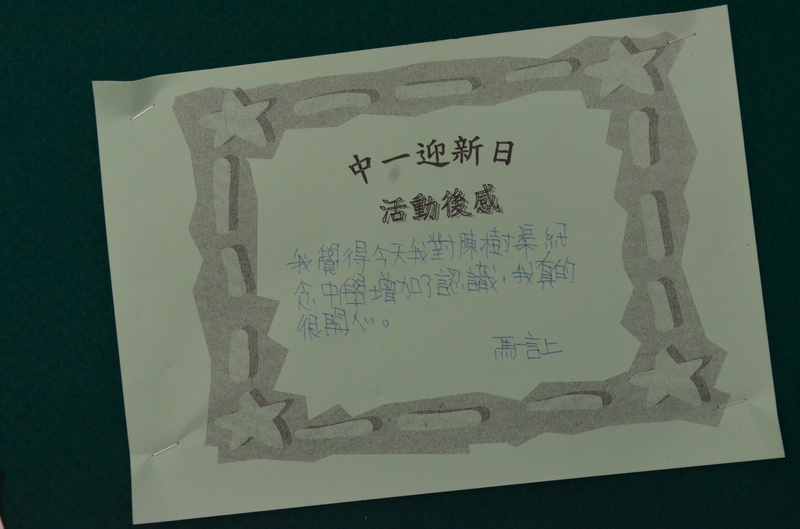 中一迎新日
活動後感
我覺得今天我對陳樹渠紀
念中學增加了認識，我真的
很開心。
馮一言上